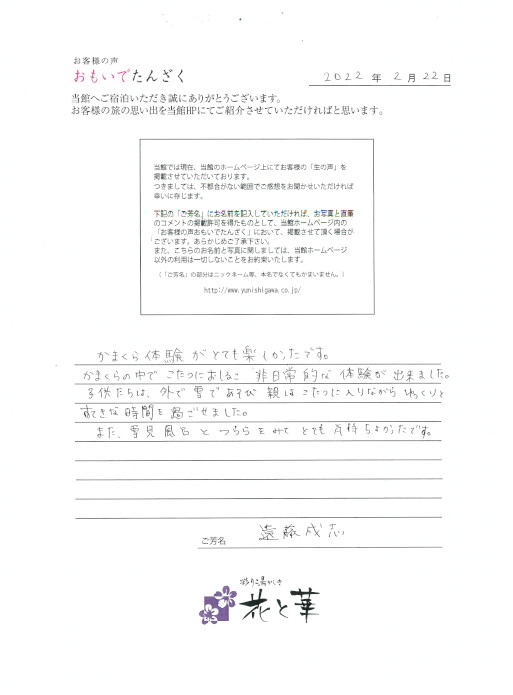 お客様の声
おもいでたんざく
2022 年 2 月 22 日
当館へご宿泊いただき誠にありがとうございます。
お客様の旅の思い出を当館HPにてご紹介させていただければと思います。
当館では現在、当館のホームページ上にてお客様の「生の声」を
掲載させていただいております。
つきましては、不都合がない範囲でご感想をお聞かせいただければ
幸いに存じます。
下記の「ご芳名」にお名前を記入していただければ、お写真と直筆
のコメントの掲載許可を得たものとして、当館ホームページ内の
「お客様の声おもいでたんざく」において、掲載させて頂く場合が
ございます。あらかじめご了承下さい。
また、こちらのお名前と写真に関しましては、当館ホームページ
以外の利用は一切しないことをお約束いたします。
(「ご芳名」の部分はニックネーム等、本名でなくてもかまいません。)
http://www.yunishigawa.co.jp/
かまくら体験がとても楽しかったです。
かまくらの中でこたつにおしるこ 非日常的な体験が出来ました。
子供たちは、外で雪であそび 親はこたつに入りながらゆっくりと
すてきな時間を過ごせました。
また、雪見風呂とつららをみてとても気持ちよかったです。
ご芳名 遠藤成志
彩り湯かしき
花と華